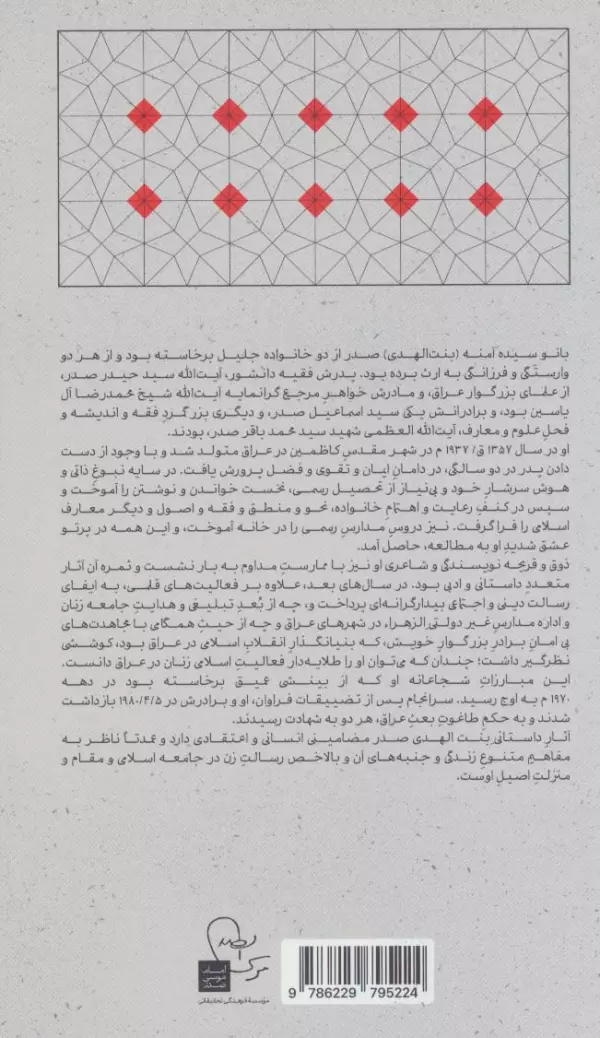 بانو سیده آمنه (بنت‌الهدی) صدر از دو خانواده جلیل برخاسته بود و از هر دو
وارستگی و فرزانگی به ارث برده بود. پدرش فقیه دانشور، آیت‌الله سید حیدر صدر،
از علمای بزرگوار عراق، و مادرش خواهر مرجع گرانمایه آیت‌الله شیخ محمدرضا آل
یاسین بود، و برادرانش یکی سید اسماعیل صدر، و دیگری بزرگ‌گردِ فقه و اندیشه و
فحلِ علوم و معارف، آیت‌الله العظمی شهید سید محمد باقر صدر، بودند.
او در سال ۱۳۵۷ ق/ ۱۹۳۷ م در شهر مقدس کاظمین در عراق متولد شد و با وجود از دست
دادن پدر در دو سالگی، در دامان ایمان و تقوی و فضل پرورش یافت. در سایه نبوغ ذاتی و
هوش سرشار خود و بی‌نیاز از تحصیل رسمی، نخست خواندن و نوشتن را آموخت و
سپس در کنفِ رعایت و اهتمامِ خانواده، نحو و منطق و فقه و اصول و دیگر معارف
اسلامی را فرا گرفت. نیز دروس مدارس رسمی را در خانه آموخت، و این همه در پرتو
عشق شدیدِ او به مطالعه، حاصل آمد.
ذوق و قریحه نویسندگی و شاعری او نیز با ممارستِ مداوم به بار نشست و ثمره آن آثار
متعددِ داستانی و ادبی بود. در سال‌های بعد، علاوه بر فعالیت‌های قلمی، به ایفای
رسالت دینی و اجتماعی بیدارگرانه‌ای پرداخت و، چه از بُعدِ تبلیغی و هدایتِ جامعه زنان
و اداره مدارسِ غیر دولتی الزهراء در شهرهای عراق و چه از حیثِ همگامی با مجاهدت‌های
بی امانِ برادرِ بزرگوار خویش، که بنیانگذارِ انقلابِ اسلامی در عراق بود، کوششی
نظرگیر داشت؛ چندان که می‌توان او را طلایه‌دار فعالیتِ اسلامی زنان در عراق دانست.
این مبارزاتِ شجاعانه او که از بینشی عمیق برخاسته بود در دهه
۱۹۷۰ م به اوج رسید. سرانجام پس از تضییقات فراوان، او و برادرش در ۱۹۸۰/۴/۵ بازداشت
شدند و به حکمِ طاغوتِ بعثِ عراق، هر دو به شهادت رسیدند.
آثارِ داستانیِ بنت الهدی صدر مضامینی انسانی و اعتقادی دارد و عمدتاً ناظر به
مفاهیمِ متنوعِ زندگی و جنبه‌های آن و بالاخص رسالتِ زن در جامعه اسلامی و مقام و
منزلتِ اصیلِ اوست.
امام
موسی
صدر
مؤسسهٔ فرهنگی تحقیقاتی
9 786229 795224